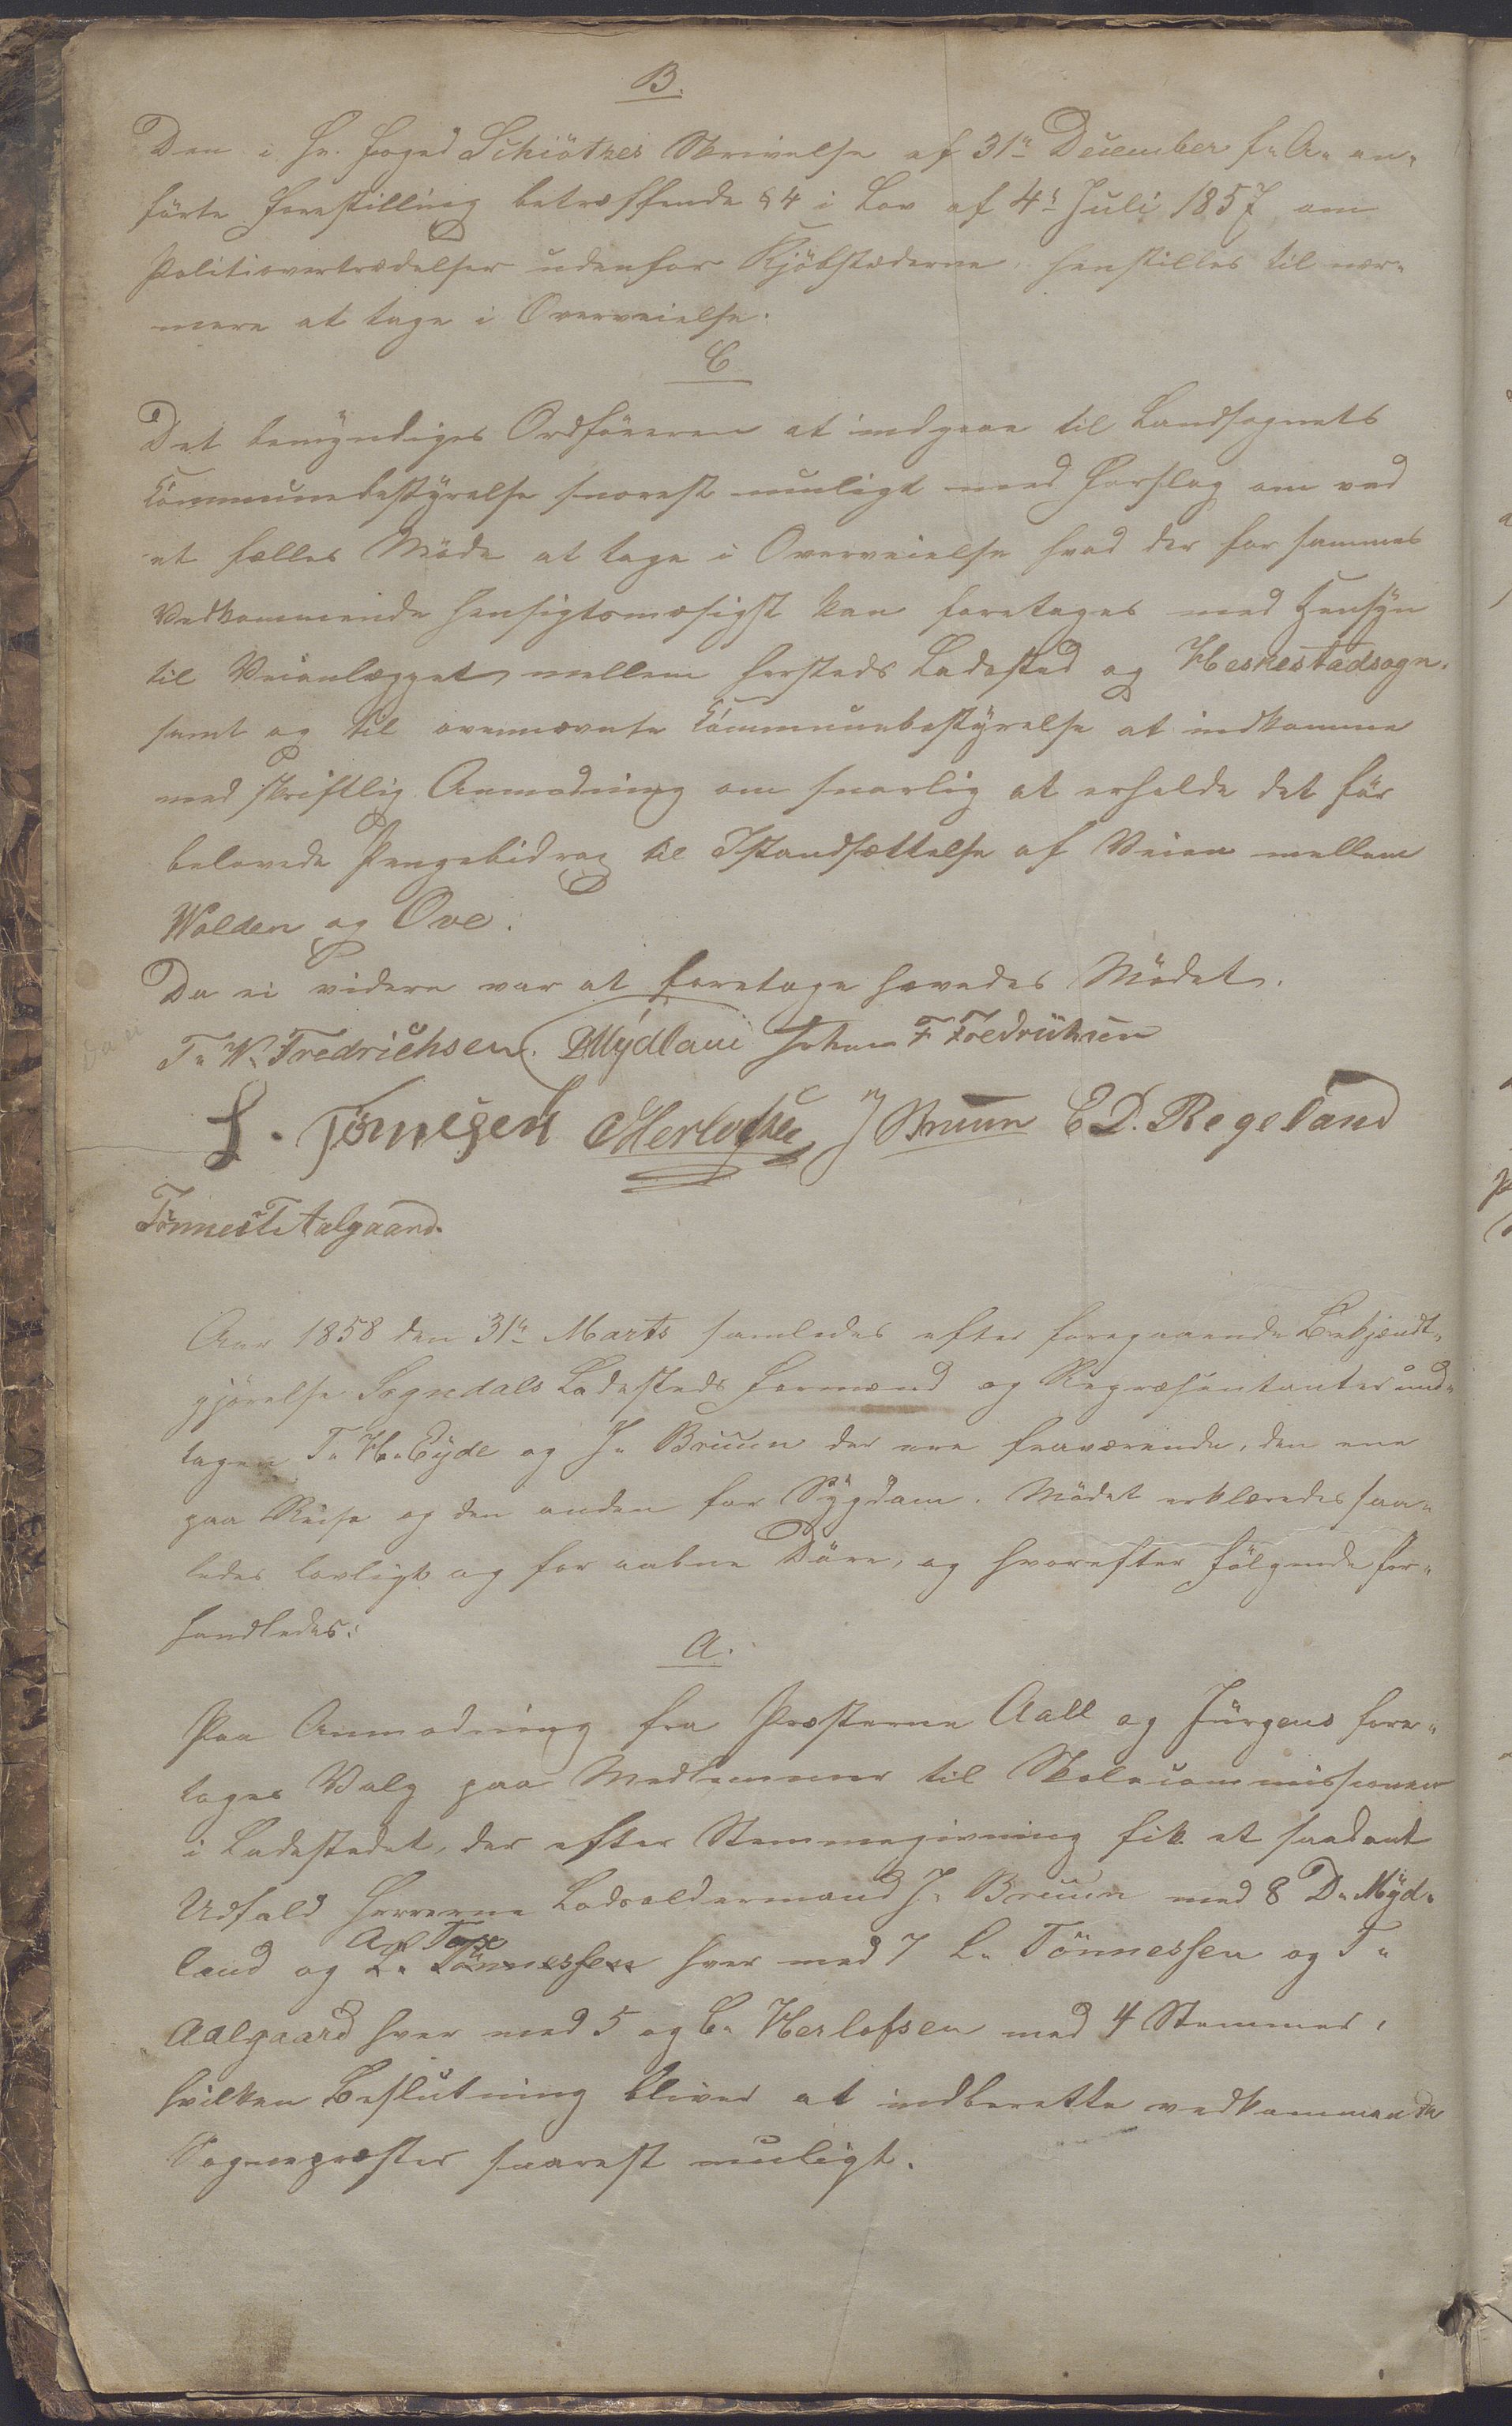 B.
Den i Hr. Foged Schiötzes Skrivelse af 31te December f. A. an-
förte Forestilling betræffende § 4 i Lov af 4de Juli 1857 om
Politiovertrædelser udenfor Kjöbstæderne, henstilles til nær-
mere at tage i Overveielse.
C
Det bemyndiges Ordföreren at indgaae til Landsognets
Communebestyrelse snarest muligt med Forslag om ved
et fælles Möde at tage i Overveielse hvad der for sammes
Vedkommende hensigtsmæsigst kan foretages med Hensyn
til Veianlægget mellem herteds Ladested og Heskestadsogn.
samt og til ovennævnte Communebestyrelse at indkomme
med skriftlig Anmodning om snarlig at erholde det för
belovede Pengebidrag til Istandsættelse af Veien mellem
Wolden og Ove.
Da ei videre var at foretage hævedes Mödet.
T. W. Fredrichsen. DMydland Johan F Fredrichsen
L. Tönnesen CHerlofsen J Bruun E D. Regeland
Tönnes T Aalgaard.
Aar 1858 den 31te Marts samledes efter foregaaende Bekjendt-
gjörelse Sogndals Ladesteds Formænd og Repræsentanter und-
tagen T. H. Eyde og J. Bruun der ere fraværende, den ene
paa Reise og den anden for Sygdom. Mödet erklæredes saa-
ledes lovligt og for aabne Döre, og hvorefter fölgende for-
handledes:
A.
Paa Anmodning fra Præsterne Aall og Jürgens fore-
toges Valg paa Medlemmer til Skolecommissionen
i Ladestedet, der efter Stemmegivning fik et saadant
Udfald Herrerne Lodsoldermand J. Bruun med 8 D. Myd-
land og L. Tönnessen hver med 7 L. Tönnessen og T.
Aalgaard hver med 5 og C. Herlofsen med 4 Stemmer,
hvilken Beslutning bliver at indberette vedkommende
Sognepræster snarest muligt.